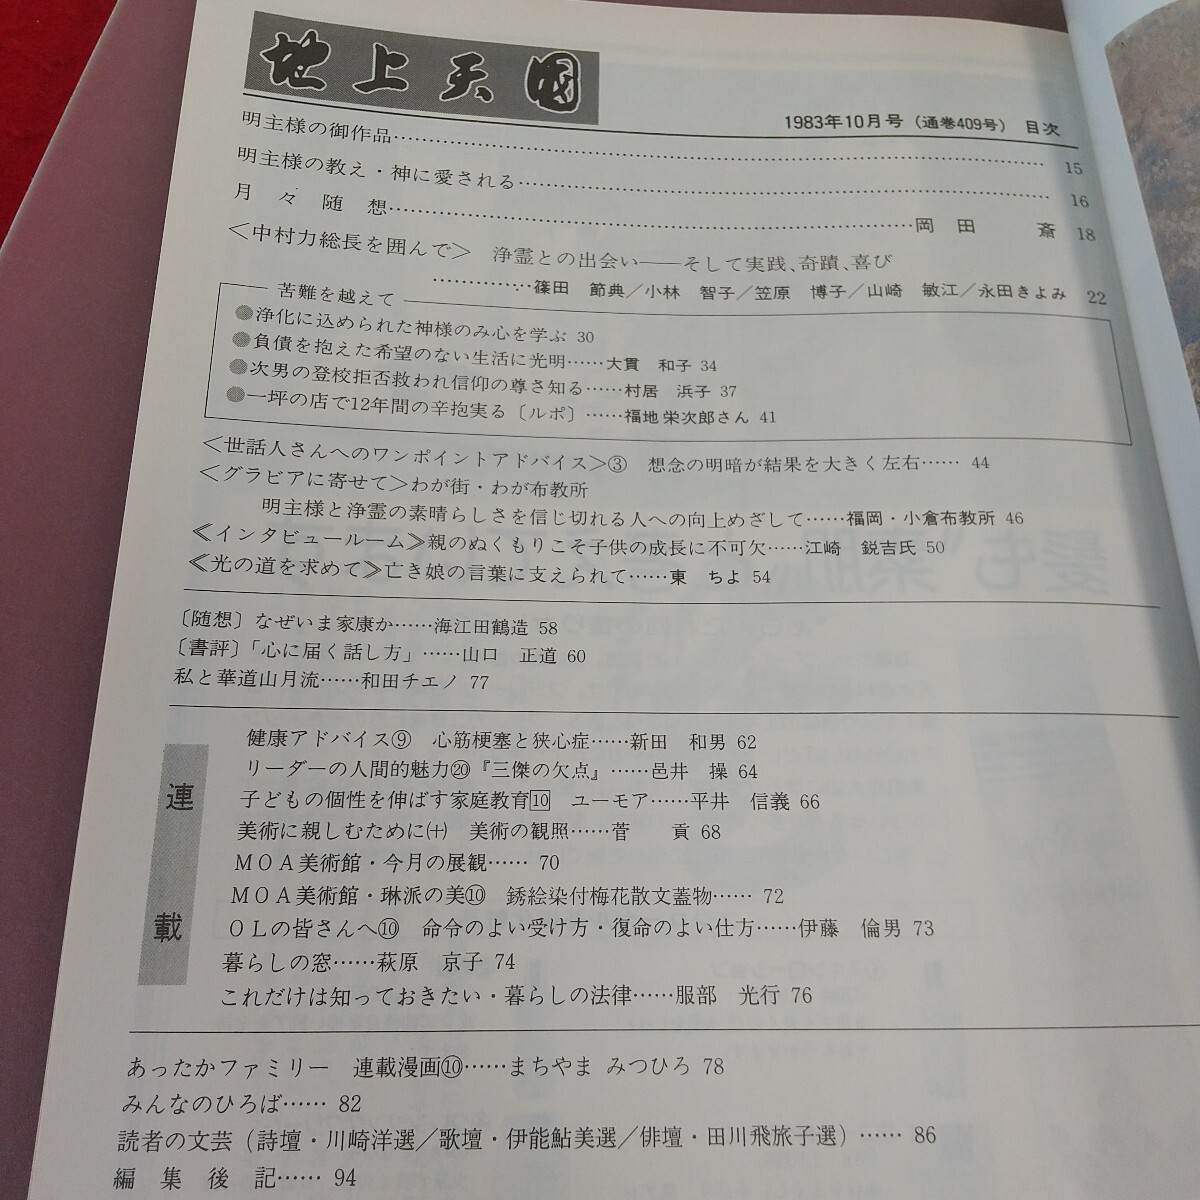 地上天国
1983年10月号（通巻409号） 目次
明主様の御作品……………………………………………… 15
明主様の教え・神に愛される……………………………………… 16
月々随想………………………………………岡田 斎 18
＜中村力総長を囲んで＞ 浄霊との出会い――そして実践、奇蹟、喜び
…………篠田 節典／小林 智子／笠原 博子／山崎 敏江／永田きよみ 22
苦難を越えて
●浄化に込められた神様のみ心を学ぶ 30
●負債を抱えた希望のない生活に光明……大貫 和子 34
●次男の登校拒否救われ信仰の尊さ知る……村居 浜子 37
●一坪の店で12年間の辛抱実る〔ルポ〕……福地 栄次郎さん 41
＜世話人さんへのワンポイントアドバイス＞③ 想念の明暗が結果を大きく左右…… 44
＜グラビアに寄せて＞わが街・わが布教所
明主様と浄霊の素晴らしさを信じ切れる人への向上めざして……福岡・小倉布教所 46
≪インタビュールーム≫親のぬくもりこそ子供の成長に不可欠……江崎 鋭吉氏 50
≪光の道を求めて≫亡き娘の言葉に支えられて……東 ちよ 54
〔随想〕なぜいま家康か……海江田鶴造 58
〔書評〕「心に届く話し方」……山口 正道 60
私と華道山月流……和田チエノ 77
連載
健康アドバイス⑨ 心筋梗塞と狭心症……新田 和男 62
リーダーの人間的魅力⑳『三傑の欠点』……邑井 操 64
子どもの個性を伸ばす家庭教育10 ユーモア……平井 信義 66
美術に親しむために(十) 美術の観照……菅 貢 68
MOA美術館・今月の展観…… 70
MOA美術館・琳派の美⑩ 銹絵染付梅花散文蓋物…… 72
OLの皆さんへ⑩ 命令のよい受け方・復命のよい仕方……伊藤 倫男 73
暮らしの窓……萩原 京子 74
これだけは知っておきたい・暮らしの法律……服部 光行 76
あったかファミリー 連載漫画⑩……まちやま みつひろ 78
みんなのひろば…… 82
読者の文芸（詩壇・川崎洋選／歌壇・伊能鮎美選／俳壇・田川飛旅子選）…… 86
編集後記…… 94